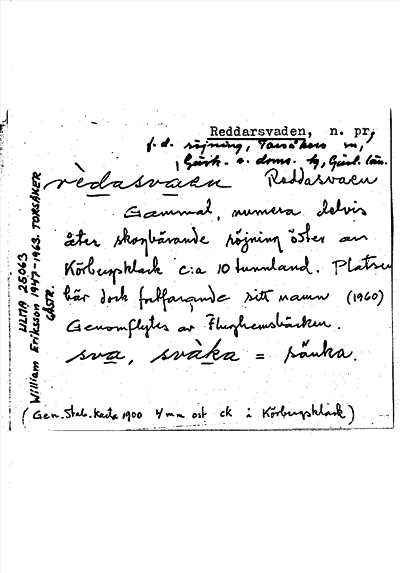 Reddarsvaden, n. pr,
f.d. röjning, Torsåkers sn,
Gästr. ö. doms. hg, Gävl. län.
rèdasvaen Reddasvaen
Gammal, numera delvis
åter skogbärande röjning öster om
Körbergsklack c:a 10 tunnland. Platsen
bär dock fortfarande sitt namn (1960)
Genomflytes av Flughemsbäcken.
sva, svàka = sänka.
(Gen. Stab. Karta 1900 4 mm ost ck i Körbergsklack)
ULMA 25063
William Eriksson 1947-1963. TORSÅKER
GÄSTR.